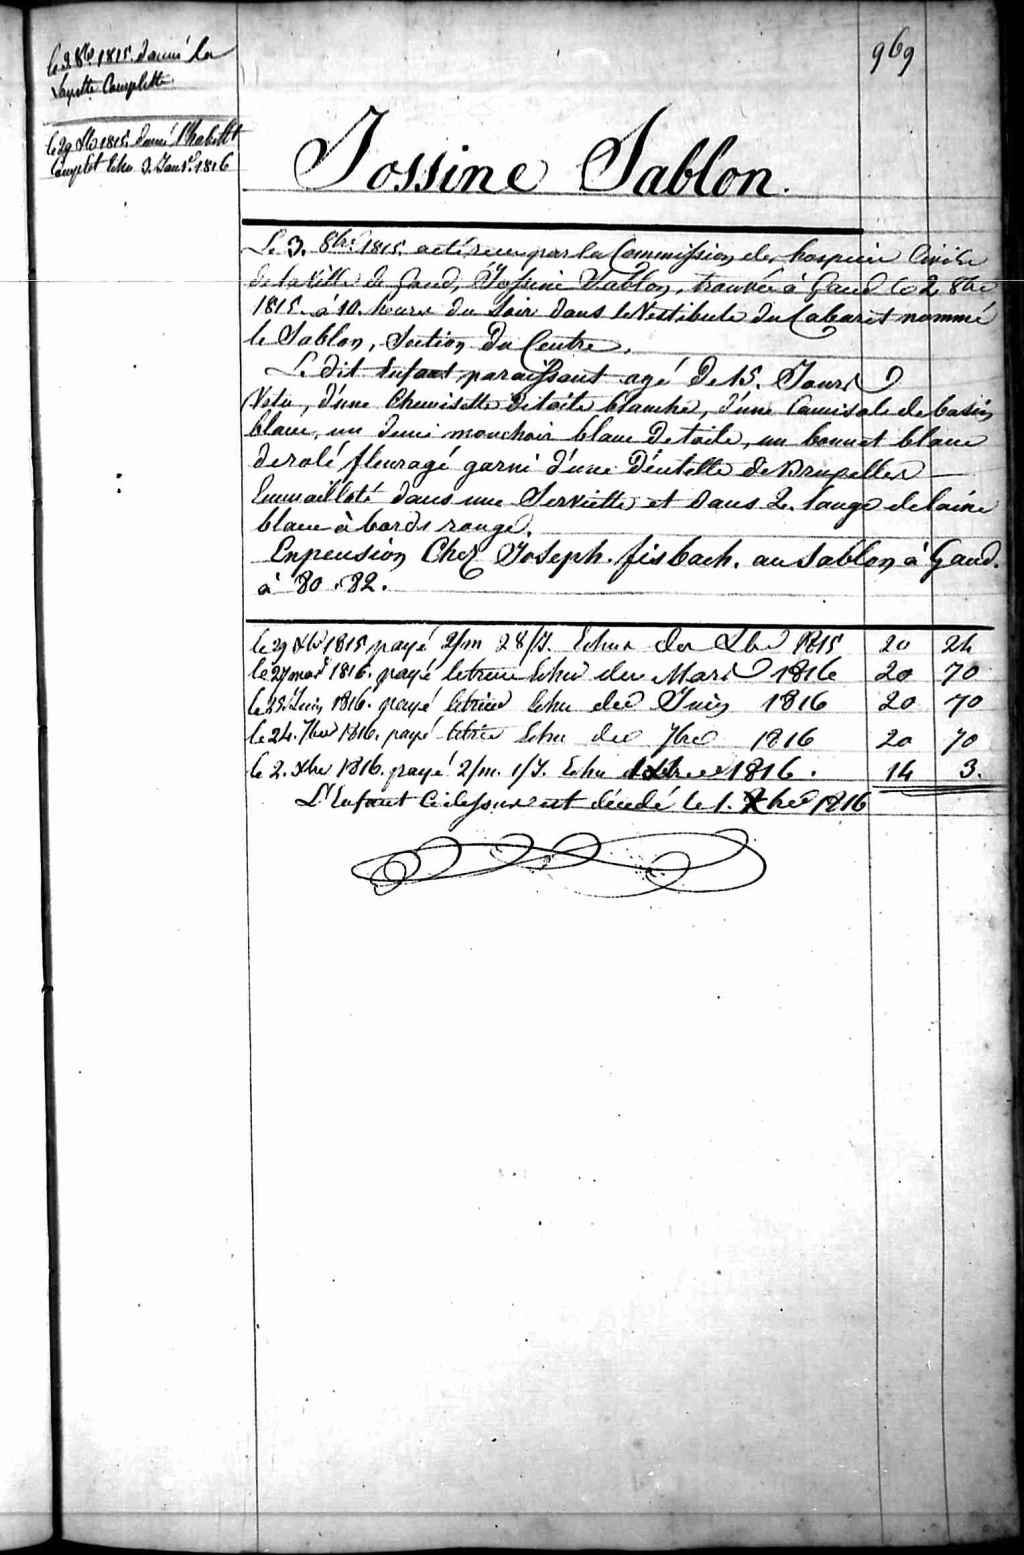 969
le 3. 8bre 1815. donné la
Layette Complette
le 29 Xbre 1815. donné l'habillt
Complet échu 3. Janvr. 1816
Jossine Sablon.
Le 3. 8bre 1815. a été reçu par la Commission des hospices Civils
de la Ville de Gand, Jossine Sablon, trouvée à Gand le 2 8bre
1815. à 10. heures du soir dans le Vestibule du Cabaret nommé
le Sablon, Section du Centre.
Le dit Enfant paraissant agé de 15. Jours
Vetu, d'une Chemisette de toile blanche, d'une Camisole de basin
blanc, un demi mouchoir blanc de toile, un bonnet blanc
fleuragé garni d'une Déntelle de Bruxelles
Emmailloté dans une Serviette et dans 2. lange de laine
blanc à bords rouge.
En pension Chez Joseph. fisbach. au Sablon à Gand.
à 80 . 82.
le 29 Xbre 1815 payé 2/m 28/J. Echus der Xbre 1815 20 24
le 27 mars 1816. payé letrim Echu der Mars 1816 20 70
le 25. Juin 1816. payé letrim Echu der Juin 1816 20 70
le 24. 7bre 1816. payé letrim Echu der 7bre 1816 20 70
le 2. Xbre 1816. payé 2/m. 1/J. Echu 1 Xbre 1816. 14 3.
L'Enfant Cidessus est décédé le 1. Xbre 1816